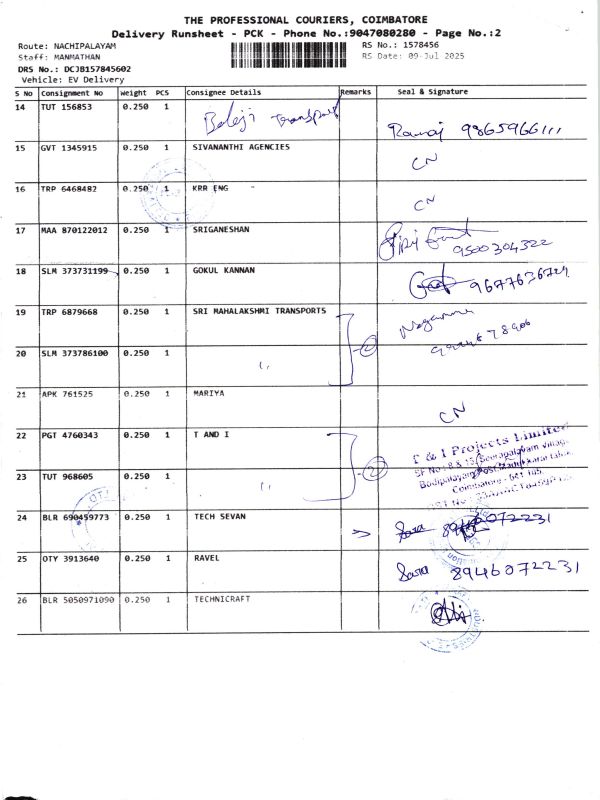 THE PROFESSIONAL COURIERS, COIMBATORE
Delivery Runsheet - PCK - Phone No.:9047080280 - Page No.:2
Route: NACHIPALAYAM
RS No.: 1578456
Staff: MANMATHAN
RS Date: 09-Jul 2025
DRS No.: DCJB157845602
Vehicle: EV Delivery
S No Consignment No Weight PCS Consignee Details Remarks Seal & Signature
14 TUT 156853 0.250 1 Baleji Transport 9865966111
15 GVT 1345915 0.250 1 SIVANANTHI AGENCIES CN
16 TRP 6468482 0.250 1 KRR ENG - CN
17 MAA 870122012 0.250 1 SRIGANESHAN 9500304322
18 SLM 373731199 0.250 1 GOKUL KANNAN
19 TRP 6879668 0.250 1 SRI MAHALAKSHMI TRANSPORTS
20 SLM 373786100 0.250 1 2
21 APK 761525 0.250 1 MARIYA CN
22 PGT 4760343 0.250 1 T AND I T & I Projects Limited
23 TUT 968605 0.250 1 2 Coimbatore
24 BLR 690459773 0.250 1 TECH SEVAN Sara 8946072231
25 OTY 3913640 0.250 1 RAVEL Sara 8946072231
26 BLR 5050971090 0.250 1 TECHNICRAFT